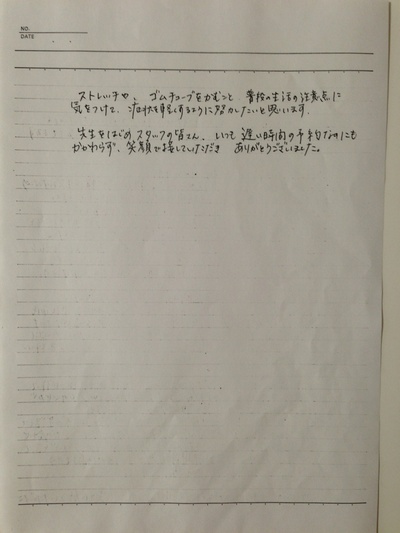 NO.
DATE
ストレッチや、ゴムチューブをかむこと 普段の生活の注意点に
気をつけて、症状を軽くするように努力したいと思います。
先生をはじめ スタッフの皆さん、いつも 遅い時間の予約なのにも
かかわらず、笑顔で接していただき ありがとうございました。